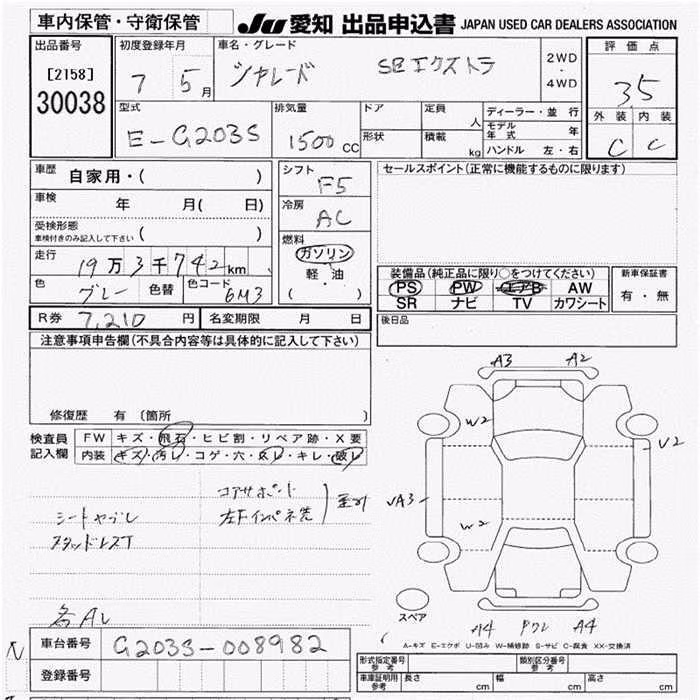 車内保管・守衛保管
JU 愛知 出品申込書 JAPAN USED CAR DEALERS ASSOCIATION
出品番号
[2158]
30038
初度登録年月
7 5 月
車名・グレード
シャレード SEエクストラ
2WD
・
4WD
評価点
3.5
外装 内装
C C
型式
E-G203S
排気量
1500 cc
ドア
形状
定員
人
積載
kg
ディーラー・並行
モデル年式 年
ハンドル 左・右
車歴
自家用・( )
車検
年 月( 日)
受検形態
車検付きのみ記入して下さい ( )
走行
19万3千742km
色
グレー
色替
色コード
6M3
シフト
F5
冷房
AC
燃料
ガソリン
・
軽・油
( )
セールスポイント(正常に機能するものに限ります)
装備品(純正品に限り○をつけてください)
PS PW エアB AW
SR ナビ TV カワシート
新車保証書
有・無
後日品
R券 7,210 円 名変期限 月 日
注意事項申告欄(不具合内容等は具体的に記入して下さい)
修復歴 有 〔箇所 〕
検査員
記入欄
FW キズ・飛石・ヒビ割・リペア跡・X要
内装 キズ・汚レ・コゲ・穴・灰レ・キレ・破レ
コアサポート
左下インパネ
シートヤブレ
スタッドレスT
各AL
A3 A2
W2
U2
A3
W2
A4 A4
スペア
A-キズ E-エクボ U-凹み W-補修跡 S-サビ C-腐食 XX-交換済
車台番号 G203S-008982
登録番号
形式指定番号 参考
類別区分番号 参考
車庫証明用 参考 長さ cm 幅 cm 高さ cm